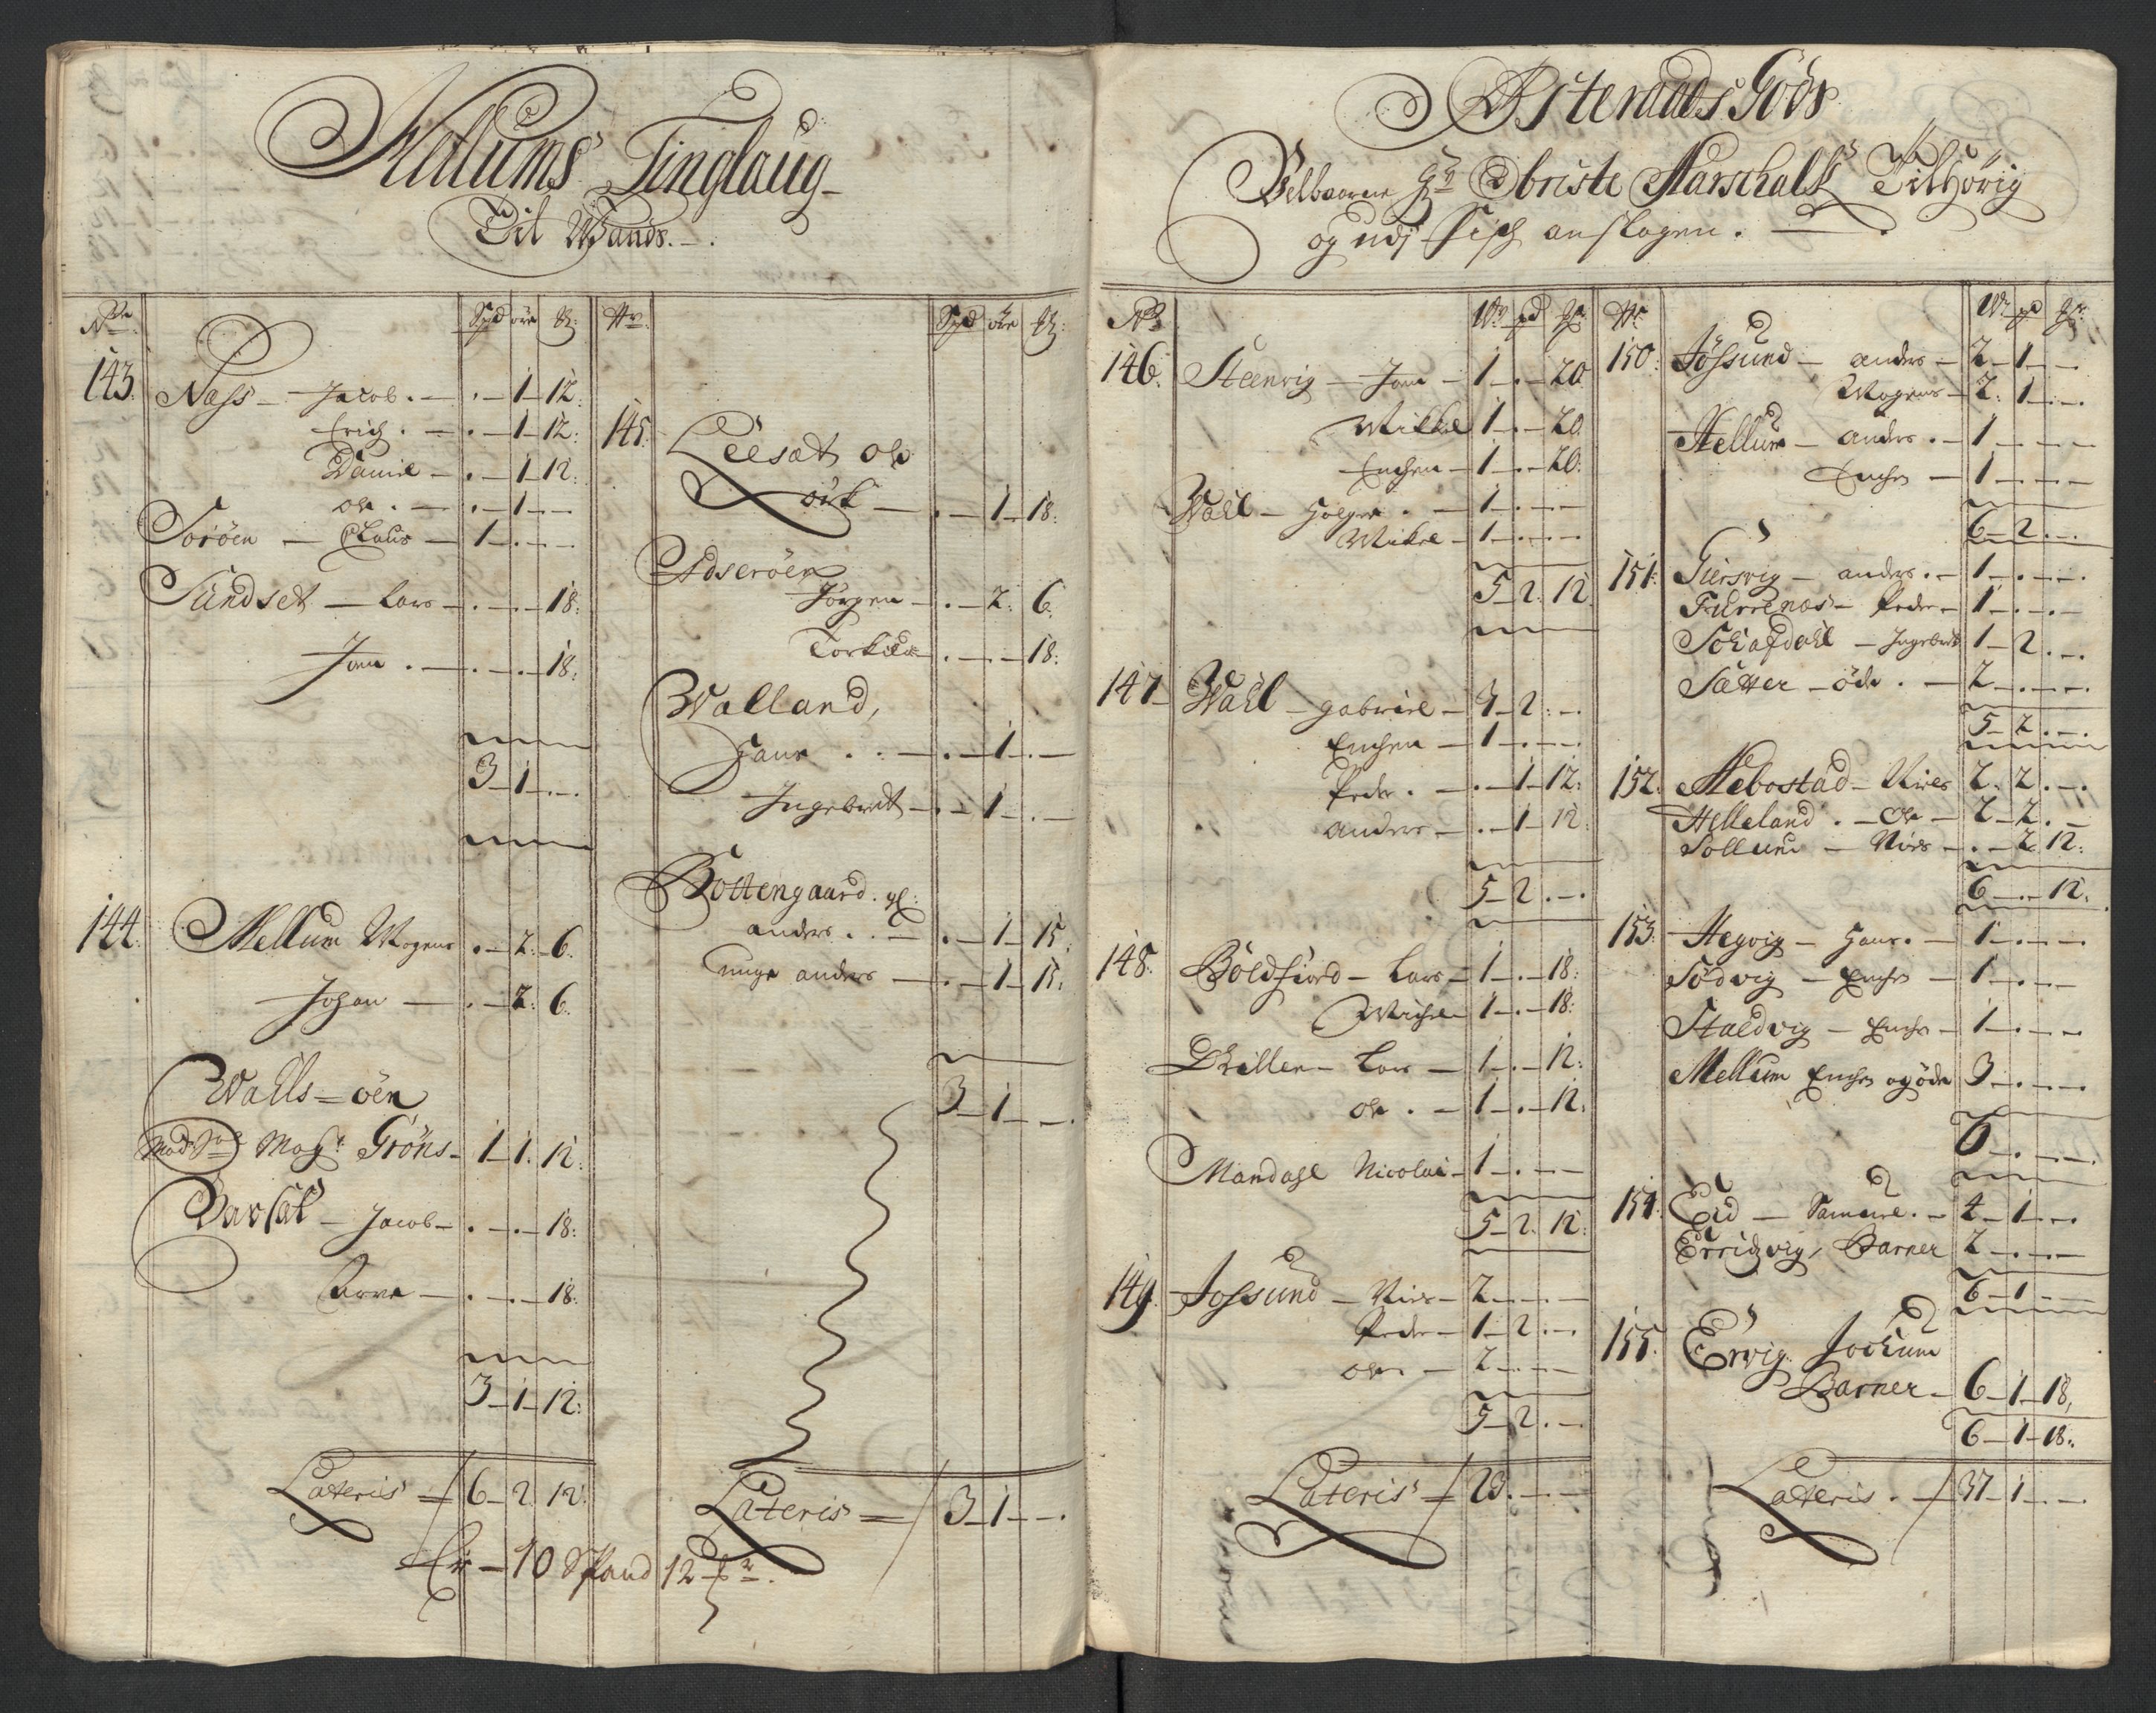 Mellums Tinglaug
Til Wands.
No Spd øre
143. Næss Jacob . 1 12
Erich . 1 12:
Daniel . 1 12:
ole . 1
Torøen Claus 1
Sundset Lars . . 18:
Jon . . 18:
3 1 .
144. Mellum Mogens . 2: 6.
Johan . 2: 6.
Walls-øen
Mads Søl Mogs: Grøns 1 1. 12:
Darsal Jacob . . 18:
Arve . . 18:
3 1 12:
Lateris 6 2 12:
Er 10 Spand 12
Spd øre
145. Leesæt ole
ørk . 1 18:
Adserøen
Jørgen . 2: 6.
Torkild . . 18:
Walland,
Hans . 1 .
Ingebret . 1 .
Bottengaard. gl:
anders . 1 15.
unge anders . 1 15:
3 1 .
Lateris 3 1 .
Østeraads Gods
Velbaarne Hr Obriste Marschalk Tilhörig
og udj Fisch anslagen.
No W pd
146. Steenvig Jon 1 . 20
Mikkel 1 . 20
Enchen 1 . 20:
Wahl Holger 1 .
Mikel 1 .
5 2. 12
147 Wahl gabriel 3 2: .
Enchen 1 .
Peder . 1 12:
anders . 1 12:
5 2 .
148. Boldfiord Lars 1 . 18:
Michel 1 . 18:
Dhillen Lars 1 . 12:
ole . 1 . 12:
Mandahl Nicolai 1 .
5 2. 12:
149. Jossund Niels 2 .
Peder 1 2 .
ole 2 .
5 2 .
Lateris 23. .
W pd
150. Jössund anders 2 1 .
Mogens 2: 1 .
Mellum anders 1
Enchen 1
6 2 .
151. Giersvig anders 1 .
Furrenæs Peder 1 .
Schafdahl Ingebret 1 2 .
Sætter øde 2 .
5 2 .
152. Mebostad Niels 2. 2 .
Helleland ole 2 2 .
Sollum Niels . 2 12:
6 . 12:
153. Hegvig Hans 1 .
Södvig Enchen 1 .
Staldvig Enchen 1 .
Mellum Enchen og øde 3 .
6 .
154. Eid Samuel. 4 1 .
Erridzvig, Barner 2 .
6 1
155. Ervig Jochum
Barner 6 1 18,
6 1 18:
Lateris 37 1 .